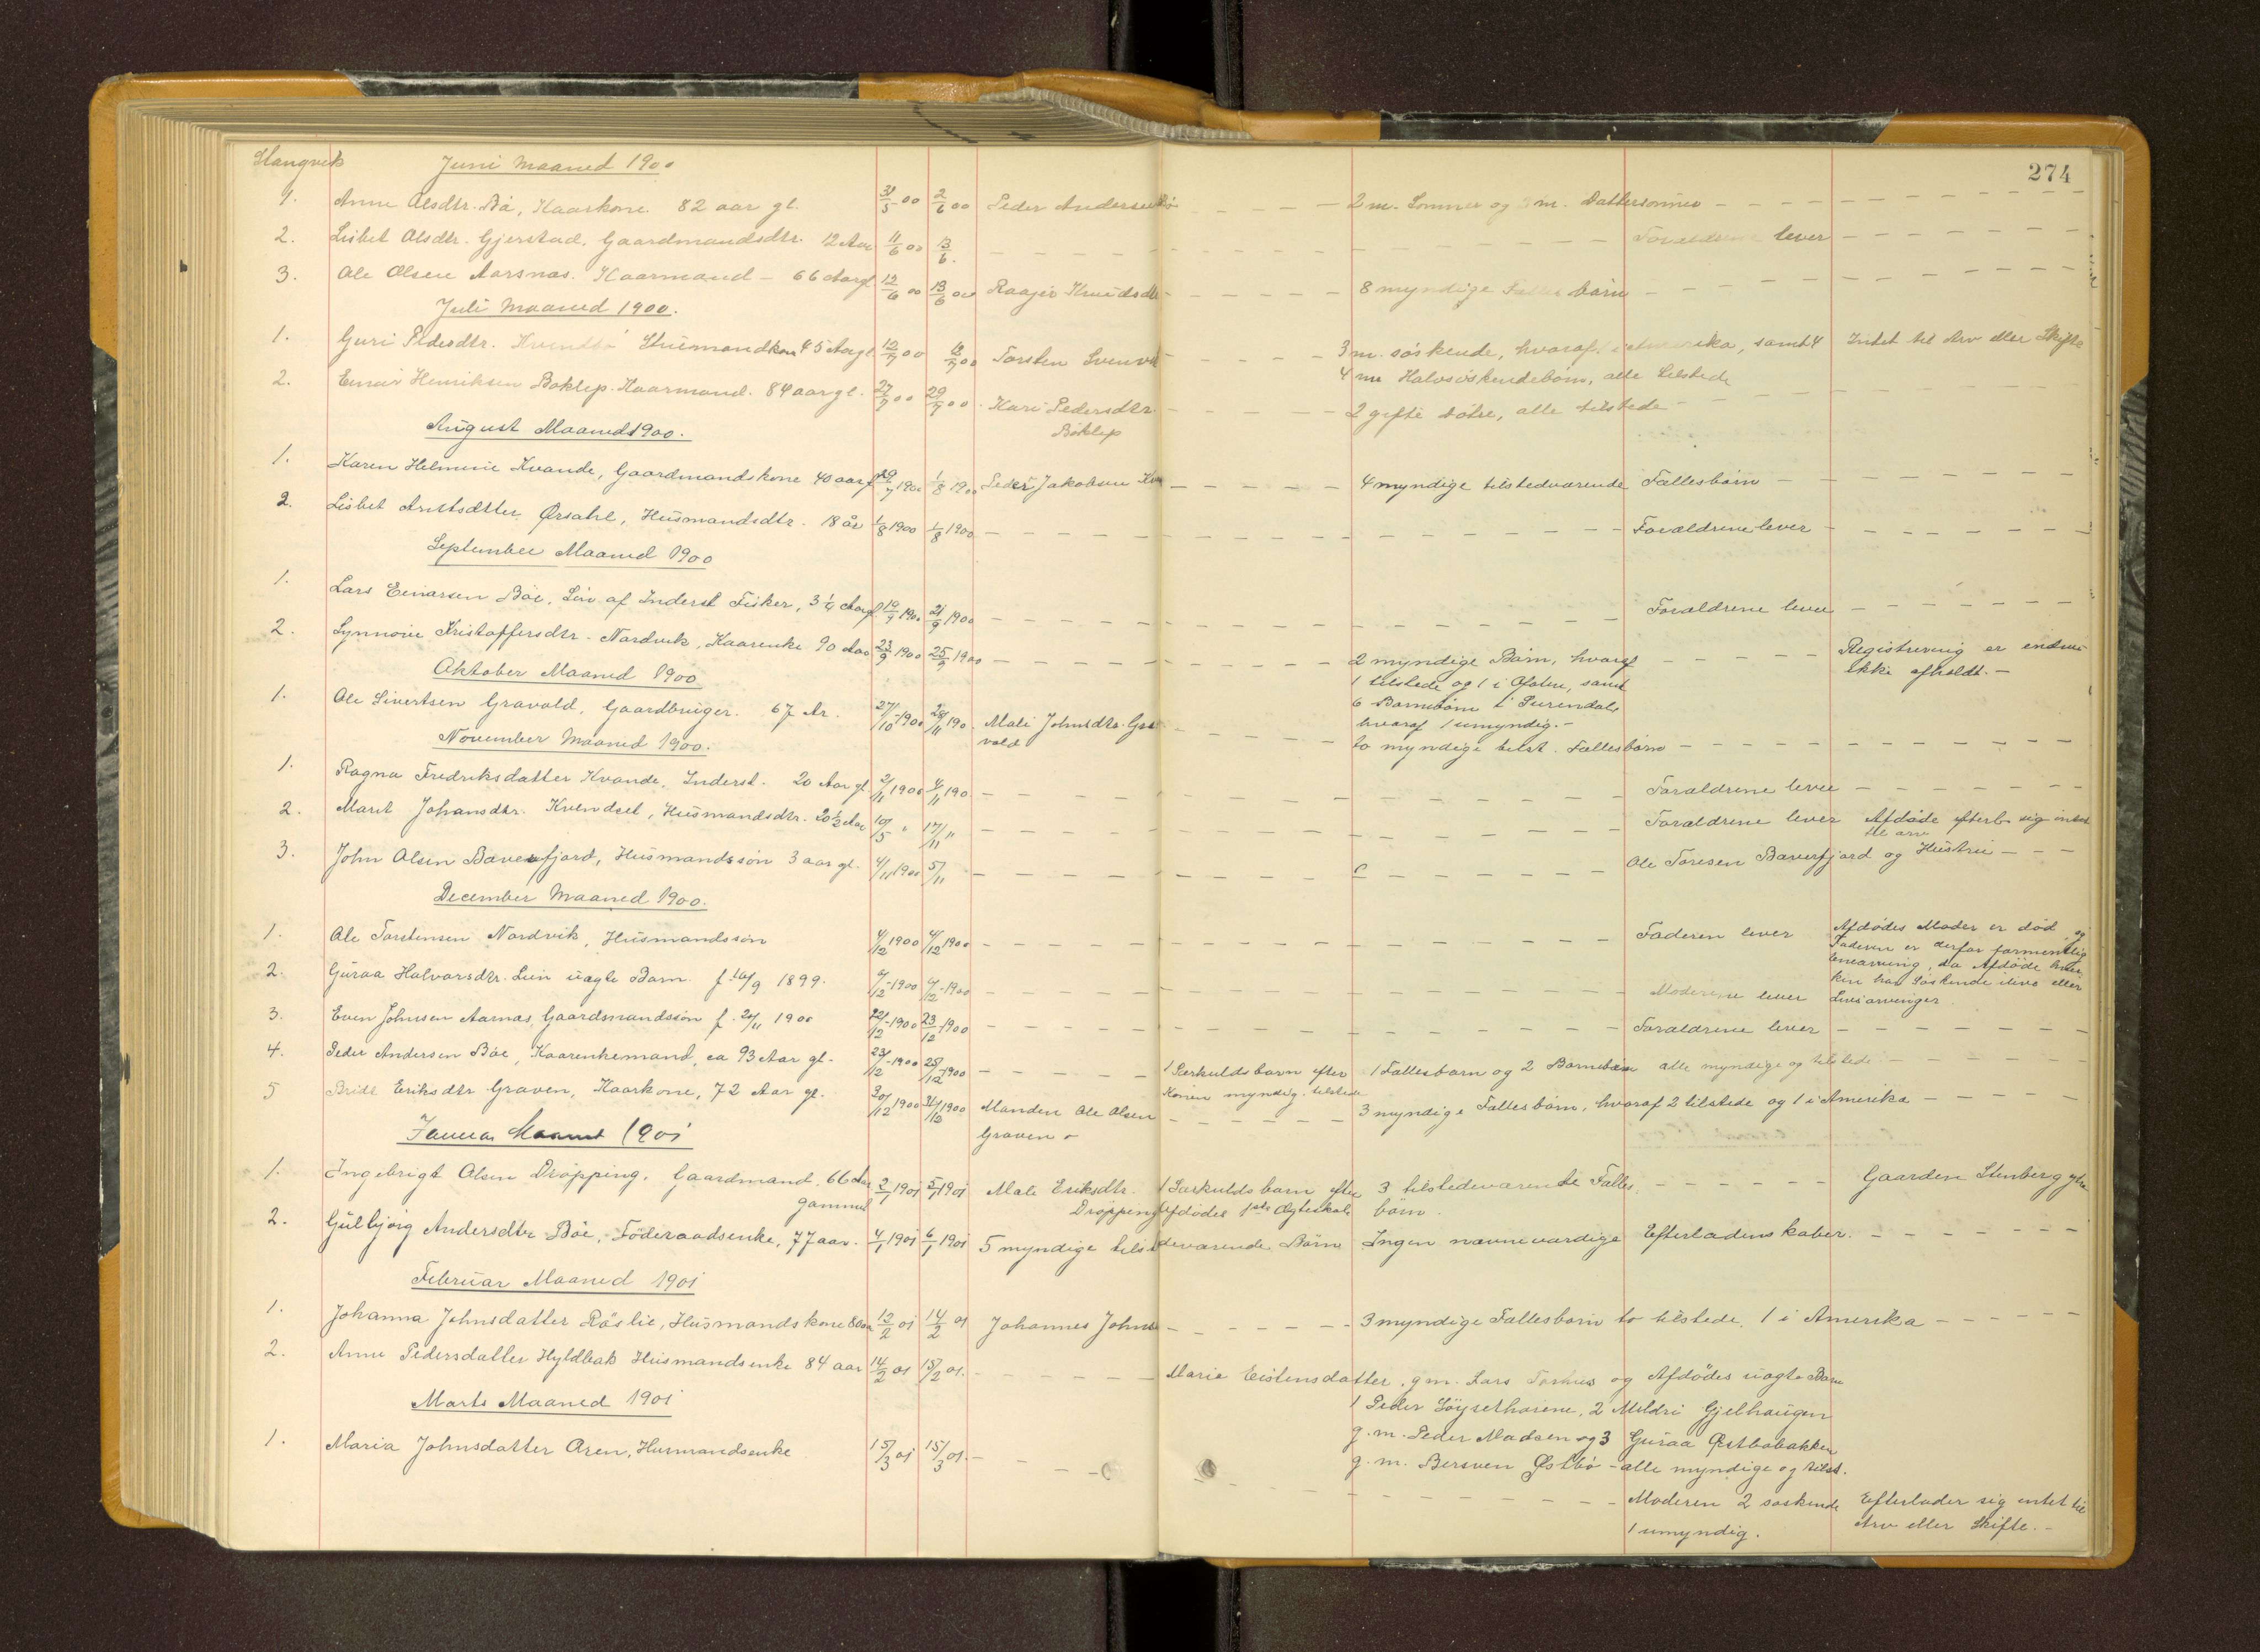 274
Stangvik Juni Maaned 1900
1. Anne Olsdtr. Bö, Kaarkone. 82 aar gl. 31/5 00 2/6 00 Peder Andersen Bö – – – – 2 m. Sønner og 3 m. Dattersønner – – – –
2. Lisbet Olsdtr. Gjerstad, Gaardmandsdtr. 12 Aar 11/6 00 13/6. – – – – Forældrene lever – – – –
3. Ole Olsen Aarsnas. Kaarmand – 66 Aar gl. 12/6 00 13/6 00 Raager Knudsdtr – – – – 8 myndige Fælles börn – – – –
Juli Maaned 1900.
1. Guri Pedersdtr. Kvendbö Husmandkone 45 Aar gl. 12/7 00 /7 00 Torsten Svenvik – – – – 3 m. söskende, hvoraf 1 i Amerika, samt 4 Intet til Arv eller Skifte
4 m Halvsöskendebörn, alle tilstede
2. Einar Henriksen Boklep. Kaarmand. 84 aar gl. 27/7 00 29/7 00. Kari Pedersdtr. – – – – 2 gifte dötre, alle tilstede – – – –
Böklep
August Maaned 1900.
1. Karen Helmine Kvande, Gaardmandskone 40 aar gl 29/7 1900 1/8 1900 Peder Jakobsen Kva – – – – 4 myndige tilstedværende Fællesbörn – – – –
2. Lisbet Antsdtter Ørsahl, Husmandsdtr. 18 år 1/8 1900 1/8 1900 – – – – Forældrene lever – – – –
September Maaned 1900
1. Lars Einarsen Böe, Sön af Inderst Fisker, 3 1/4 Aar gl 19/9 1900 21/9 1900 – – – – Forældrene lever – – – –
2. Synnöve Kristoffersdtr. Nordvik, Kaarenke 90 Aar 23/9 1900 25/9 1900 – – – – 2 myndige Börn, hvoraf – – – – Registrering er endnu
1 tilstede og 1 i Ofoten, samt ikke afholdt. –
6 Barnebörn i Surendal
hvoraf 1 umyndig. –
Oktober Maaned 1900
1. Ole Sivertsen Gravold, Gaardbruger. 67 Ar. 27/10 1900 28/11 190. Mali Johnsdtr. Gra – – – – to myndige tilst. Fællesbörn – – – –
vold
November Maaned 1900.
1. Ragna Fredriksdatter Kvande, Inderst. 20 Aar gl. 2/11 1900 4/11 190 – – – – Forældrene lever – – – –
2. Marit Johansdtr. Kvendset, Husmandsdtr. 20 1/2 Aar 10/5 " 17/11 – – – – Forældrene lever Afdöde efterl. sig intet
til arv
3. John Olsen Bæverfjord, Husmandssön 3 aar gl. 4/11 1900 5/11 – – – – Ole Toresen Bæverfjord og Hustru – – –
December Maaned 1900.
1. Ole Torstensen Nordvik, Husmandssön 4/12 1900 4/12 1900 – – – – Faderen lever Afdödes Moder er död, og
Faderen er derfor formentlig
enearving, da Afdöde hver
ken har Söskende ilive eller
Livsarvinger.
2. Guraa Halvorsdtr. Lien uægte Barn f. 16/9 1899. 6/12 1900 6/12 1900 – – – – Moderen lever
3. Even Johnsen Aarnas, Gaardsmandssön f. 20/11 1900 22/12 1900 23/12 1900 – – – – Forældrene lever – – – –
4. Peder Andersen Böe, Kaarenkemand, ca 93 Aar gl. 23/12 1900 25/12 1900 – – – – 1 Særkuldsbarn efter 1 Fællesbarn og 2 Barnebörn alle myndige og tilstede – – – –
Konen myndig tilstede
5 Bride Eriksdtr Graven, Kaarkone, 72 Aar gl. 30/12 1900 31/12 1900 Manden Ole Olsen – – – – 3 myndige Fællesbörn, hvoraf 2 tilstede og 1 i Amerika – – – –
Graven –
Januar Maaned 1901
1. Ingebrigt Olsen Dröpping, Gaardmand, 66 Aar 2/1 1901 5/1 1901 Mali Eriksdtr. 1 Særkuldsbarn efter 3 tilstedeværende Fælles – – – – Gaarden Stenberg
gammel Dröpping Afdödes 1ste Ægteskab börn.
2. Gulbjörg Andersdtr Böe, Föderaadsenke, 77 aar. 4/1 1901 6/1 1901 5 myndige tilstedeværende Börn Ingen nævneværdige Efterladenskaber. – – – –
Februar Maaned 1901
1. Johanna Johnsdatter Röslie, Husmandskone 80 aar 12/2 01 14/2 01 Johannes Johns – – – – 3 myndige Fællesbörn to tilstede, 1 i Amerika – – – –
2. Anne Pedersdatter Hyldbak Husmandsenke 84 aar 14/2 01 15/2 01. – – – – Marie Eistensdatter, g.m. Lars Torhus og Afdödes uægte Barn
1 Peder Söysethosene, 2 Mildri Gjelhaugen
g. m. Peder Madsen og 3 Guraa Østbøbakken
g. m. Bersven Østbö – alle myndige og tilst.
Marts Maaned 1901
1. Maria Johnsdatter Aren, Husmandsenke 15/3 01 15/3 01. – – – – Moderen 2 söskende Efterlader sig intet til
1 umyndig. Arv eller Skifte. –